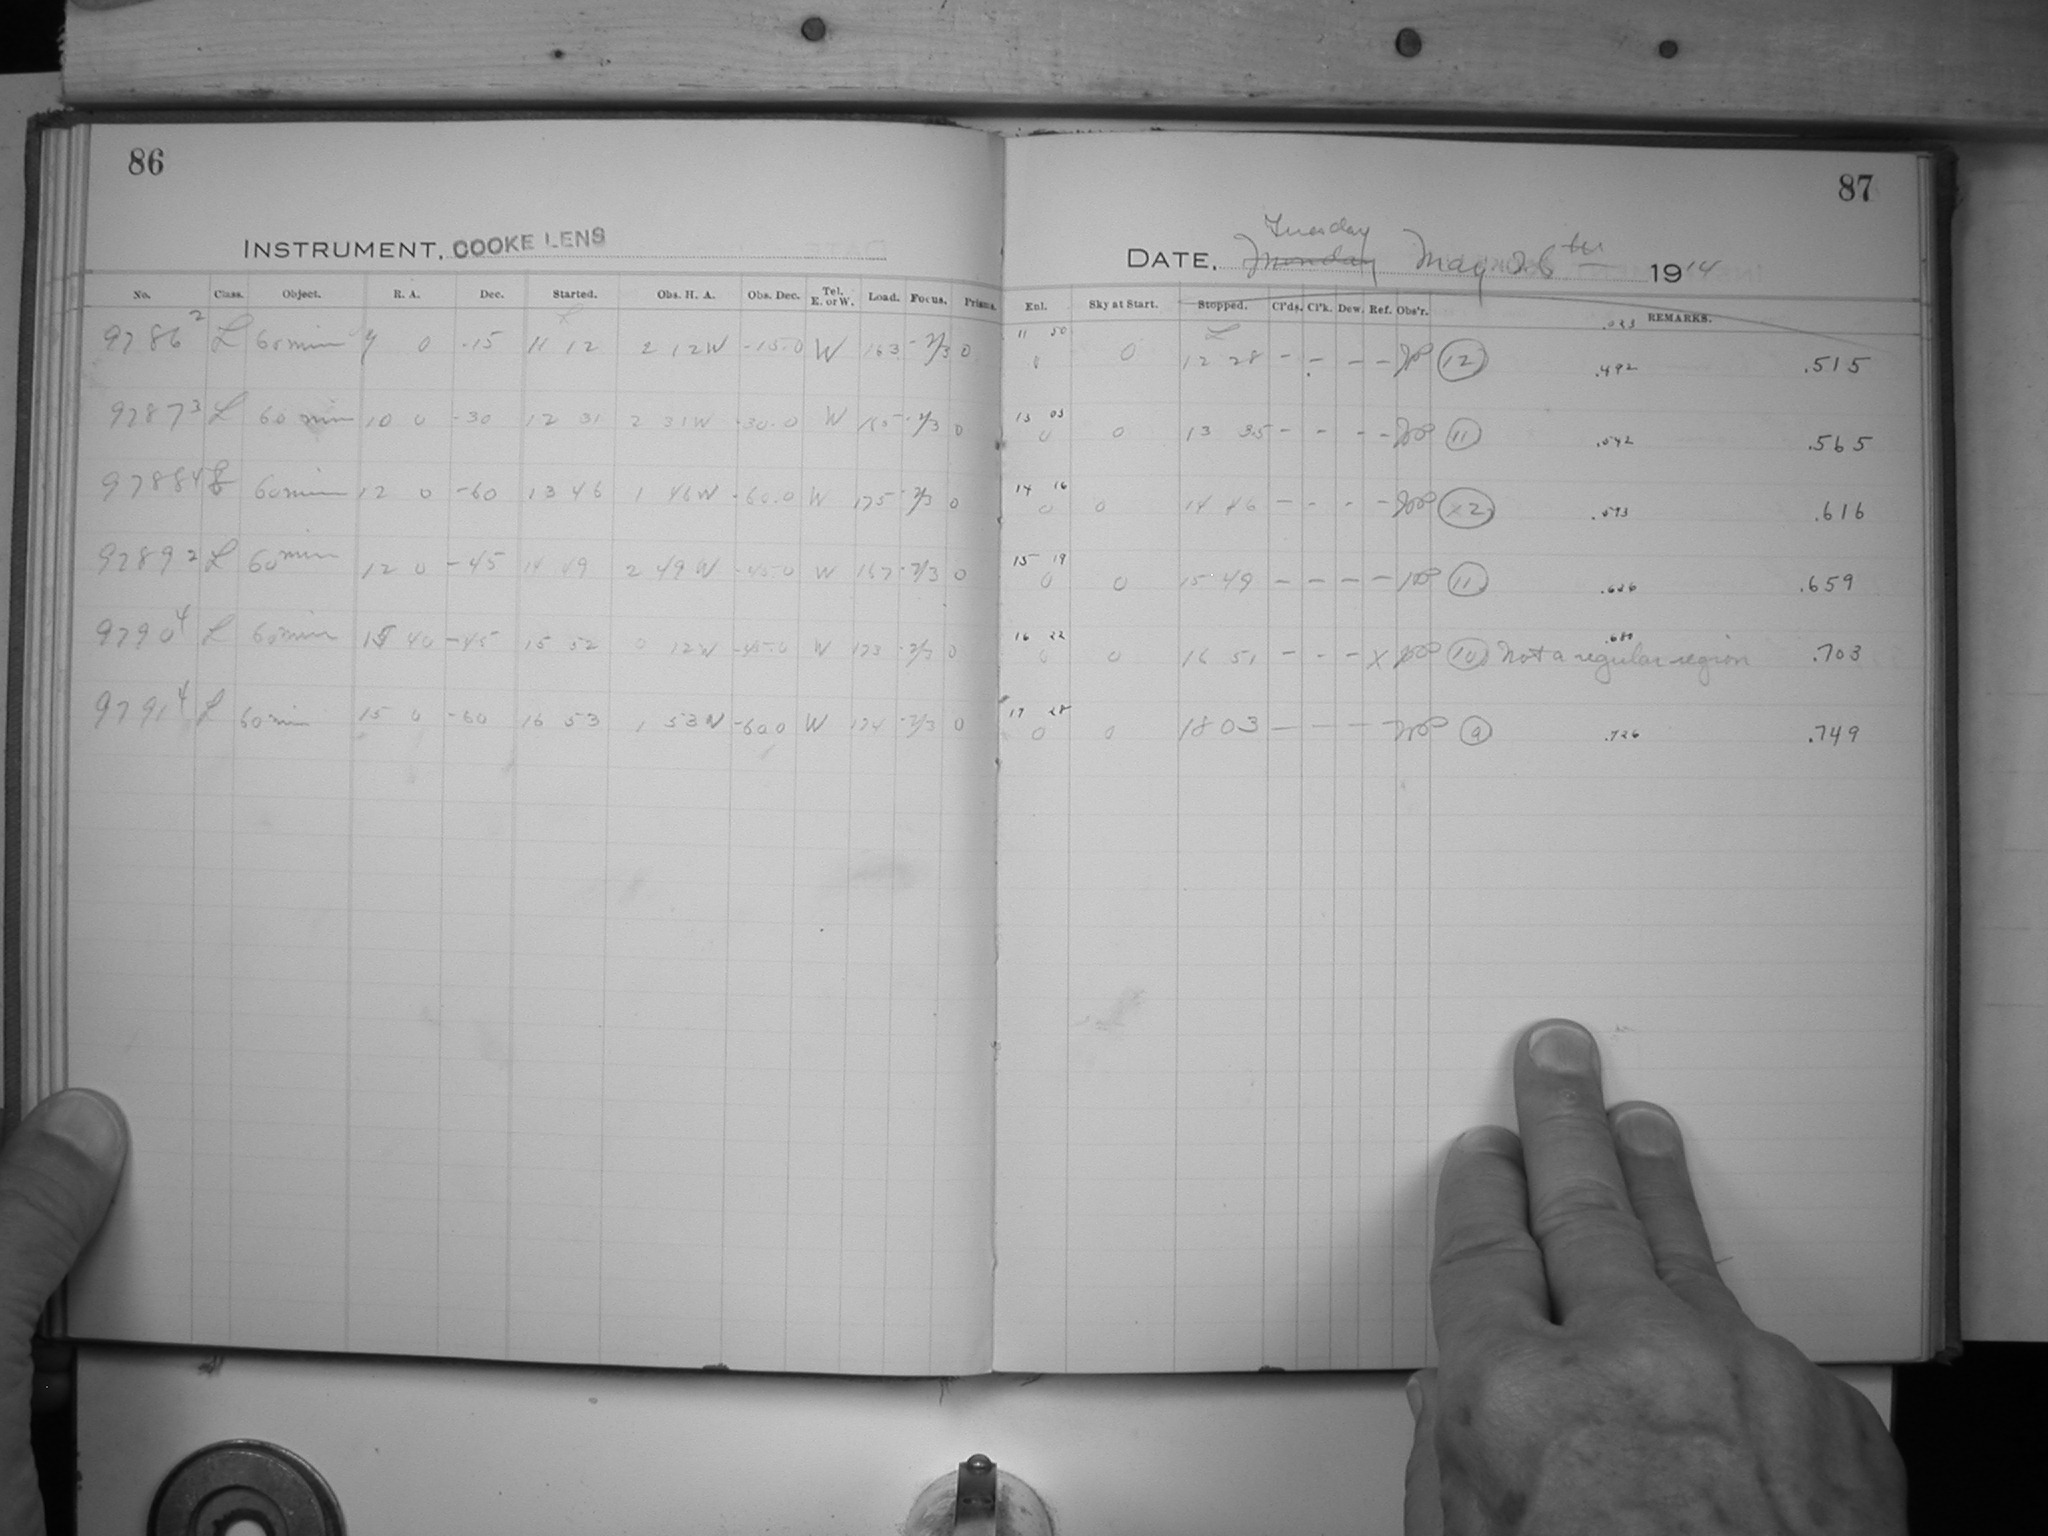 86
INSTRUMENT, COOKE LENS
No. Class. Object. R. A. Dec. Started. Obs. H. A. Obs. Dec. Tel. E. or W. Load. Focus. Prisms.
9786 2 L 60 min 9 0 -15 11 12 2 12W -15.0 W 163 -2/3 0
9787 3 L 60 min 10 0 -30 12 31 2 31W -30.0 W 165 -2/3 0
9788 4 L 60 min 12 0 -60 13 46 1 46W -60.0 W 175 -2/3 0
9789 2 L 60 min 12 0 -45 14 49 2 49W -45.0 W 167 -2/3 0
9790 4 L 60 min 15 40 -45 15 52 0 12W -45.0 W 173 -2/3 0
9791 4 L 60 min 15 0 -60 16 53 1 53W -60.0 W 174 -2/3 0
87
Tuesday
DATE, Monday May 26th 1914
Enl. Sky at Start. Stopped. Cl'ds. Cl'k. Dew. Ref. Obs'r. REMARKS.
.023
11 50
0 0 12 28 - - - - (12) .492 .515
13 03
0 0 13 35 - - - - (11) .542 .565
14 16
0 0 14 46 - - - - (12) .593 .616
15 19
0 0 15 49 - - - - (11) .636 .659
16 22 .680
0 0 16 51 - - - X (10) Not a regular region .703
17 28
0 0 18 03 - - - - (9) .726 .749